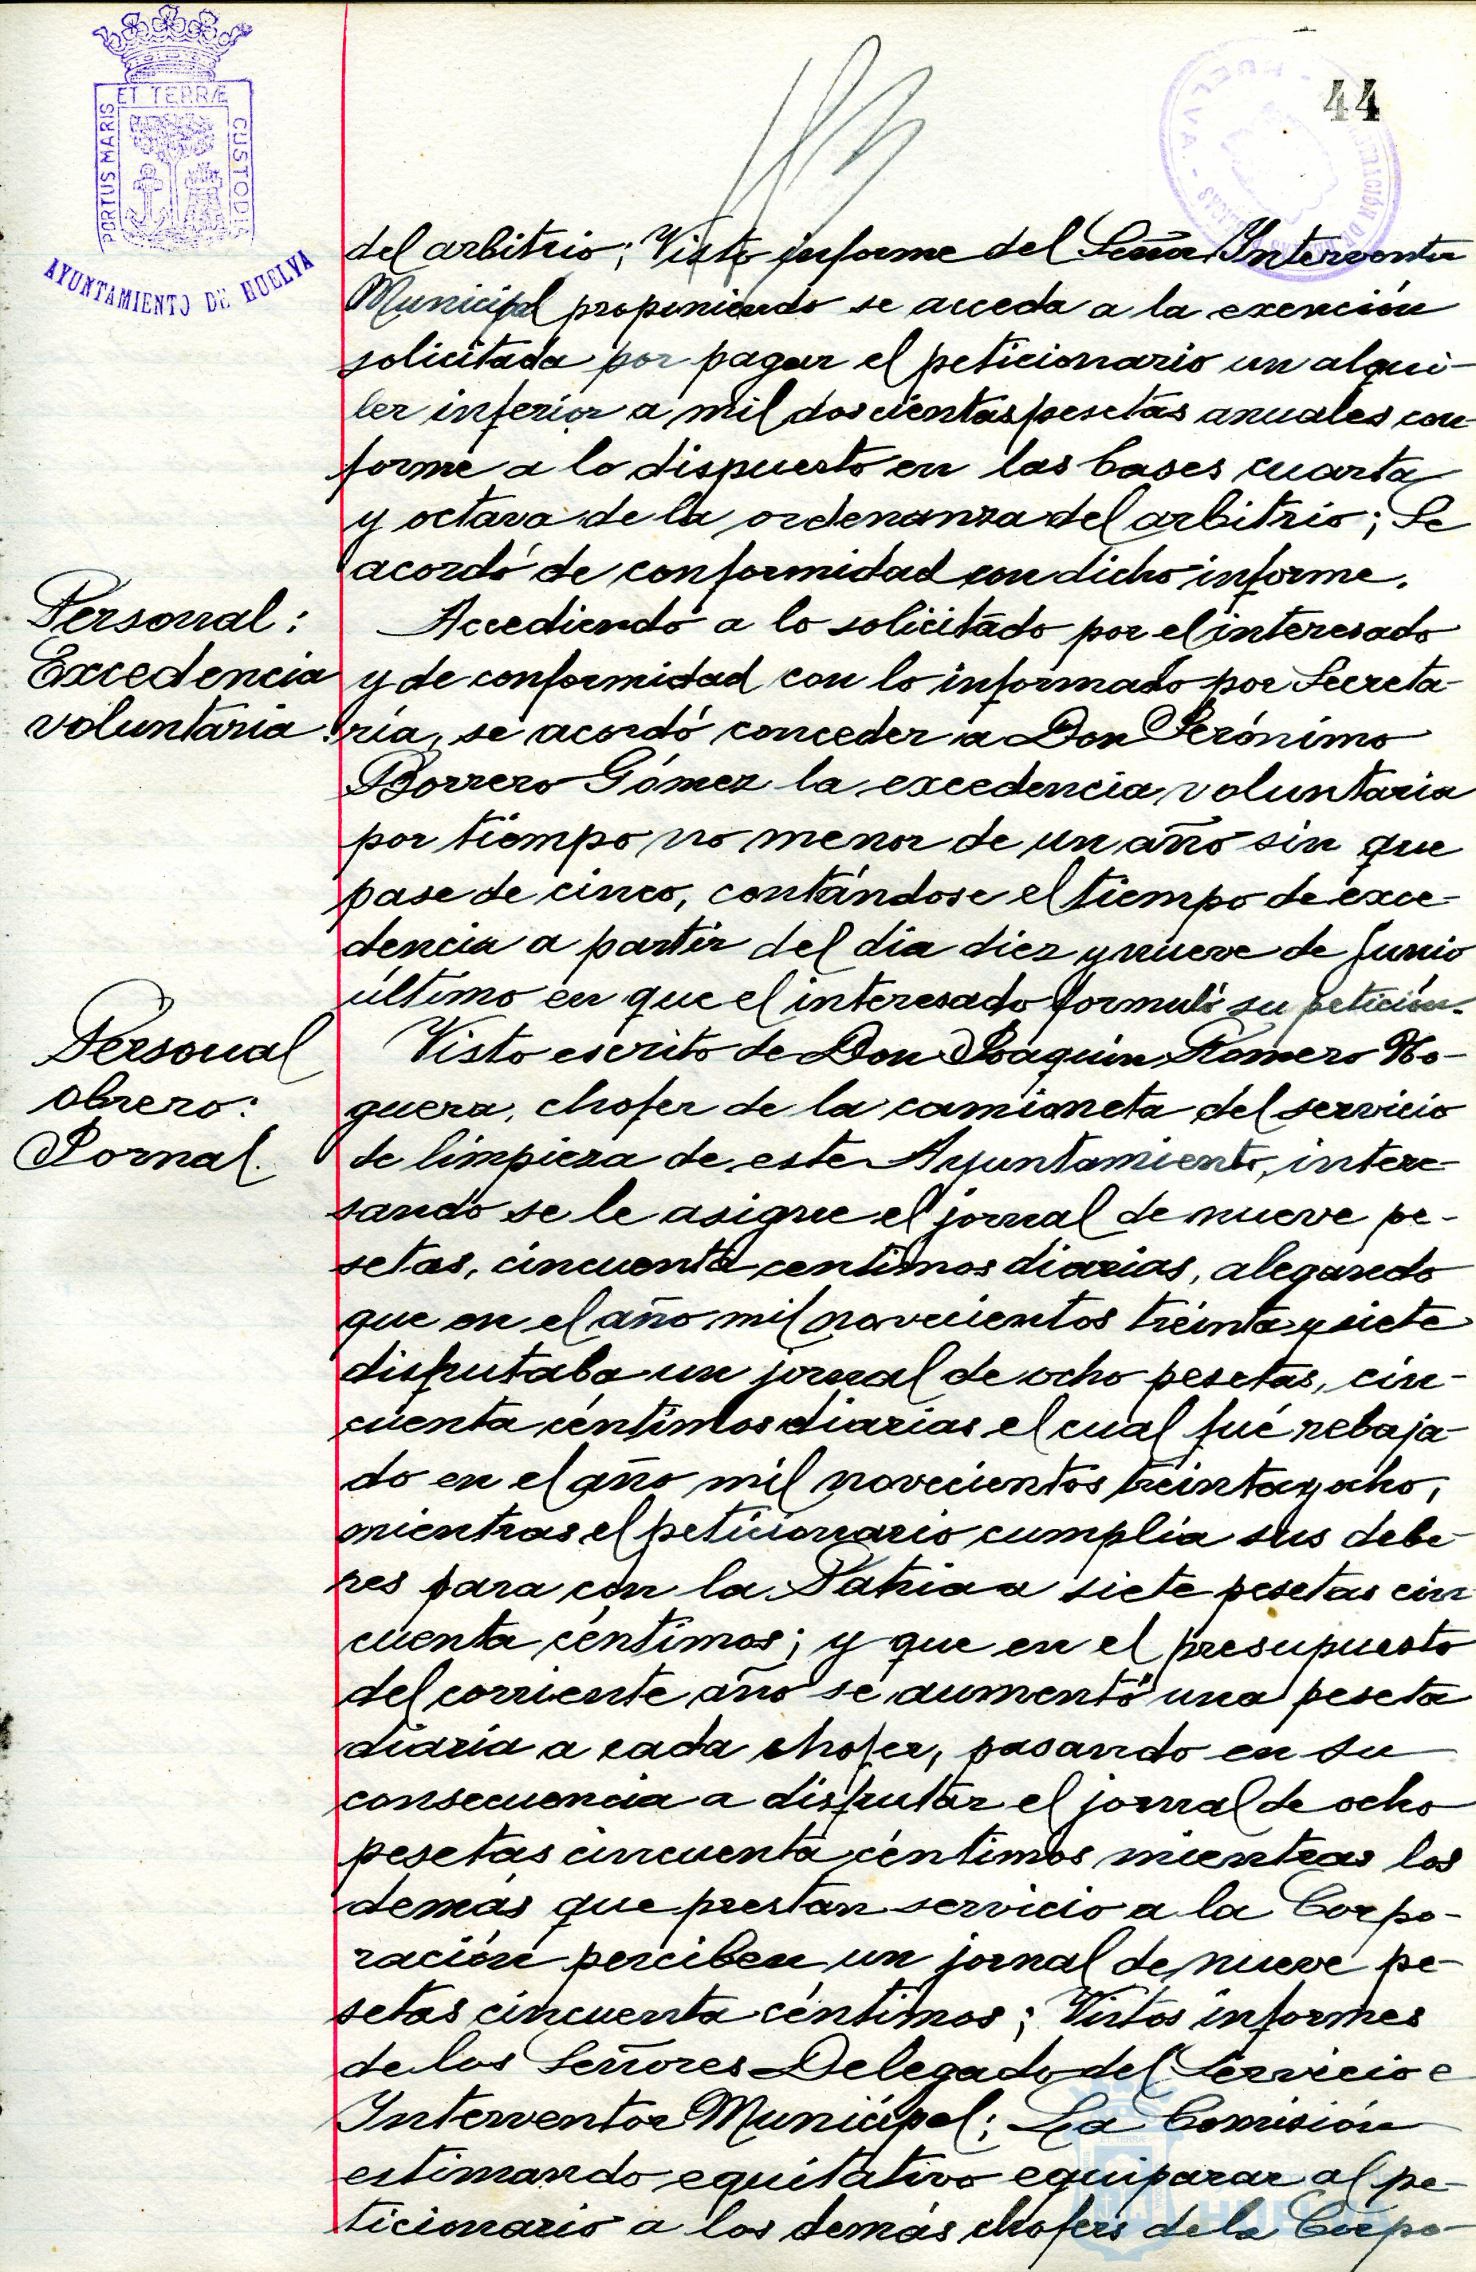 44
PORTUS MARIS
ET TERRÆ
CUSTODIA
AYUNTAMIENTO DE HUELVA
del arbitrio; Visto informe del Señor Interventor
Municipal proponiendo se acceda a la exención
solicitada por pagar el peticionario un alqui-
ler inferior a mil doscientas pesetas anuales con-
forme a lo dispuesto en las bases cuarta
y octava de la ordenanza del arbitrio; Se
acordó de conformidad con dicho informe.
Personal:
Excedencia
voluntaria.
Accediendo a lo solicitado por el interesado
y de conformidad con lo informado por Secreta-
ría, se acordó conceder a Don Jerónimo
Borrero Gómez la excedencia voluntaria
por tiempo no menor de un año sin que
pase de cinco, contándose el tiempo de exce-
dencia a partir del dia diez y nueve de Junio
último en que el interesado formuló su petición.
Personal
obrero:
Jornal.
Visto escrito de Don Joaquín Romero No-
guera, chofer de la camioneta del servicio
de limpieza de este Ayuntamiento, intere-
sando se le asigne el jornal de nueve pe-
setas, cincuenta centimos diarias, alegando
que en el año mil novecientos treinta y siete
disfrutaba un jornal de ocho pesetas, cin-
cuenta céntimos diarias el cual fué rebaja-
do en el año mil novecientos treinta y ocho,
mientras el peticionario cumplia sus debe-
res para con la Patria a siete pesetas cin
cuenta céntimos; y que en el presupuesto
del corriente año se aumentó una peseta
diaria a cada chofer, pasando en su
consecuencia a disfrutar el jornal de ocho
pesetas cincuenta céntimos mientras los
demás que prestan servicio a la Corpo-
ración perciben un jornal de nueve pe-
setas cincuenta céntimos; Vistos informes
de los Señores Delegado del Servicio e
Interventor Municipal; La Comisión
estimando equitativo equiparar al pe-
ticionario a los demás chofers de la Corpo-
HUELVA